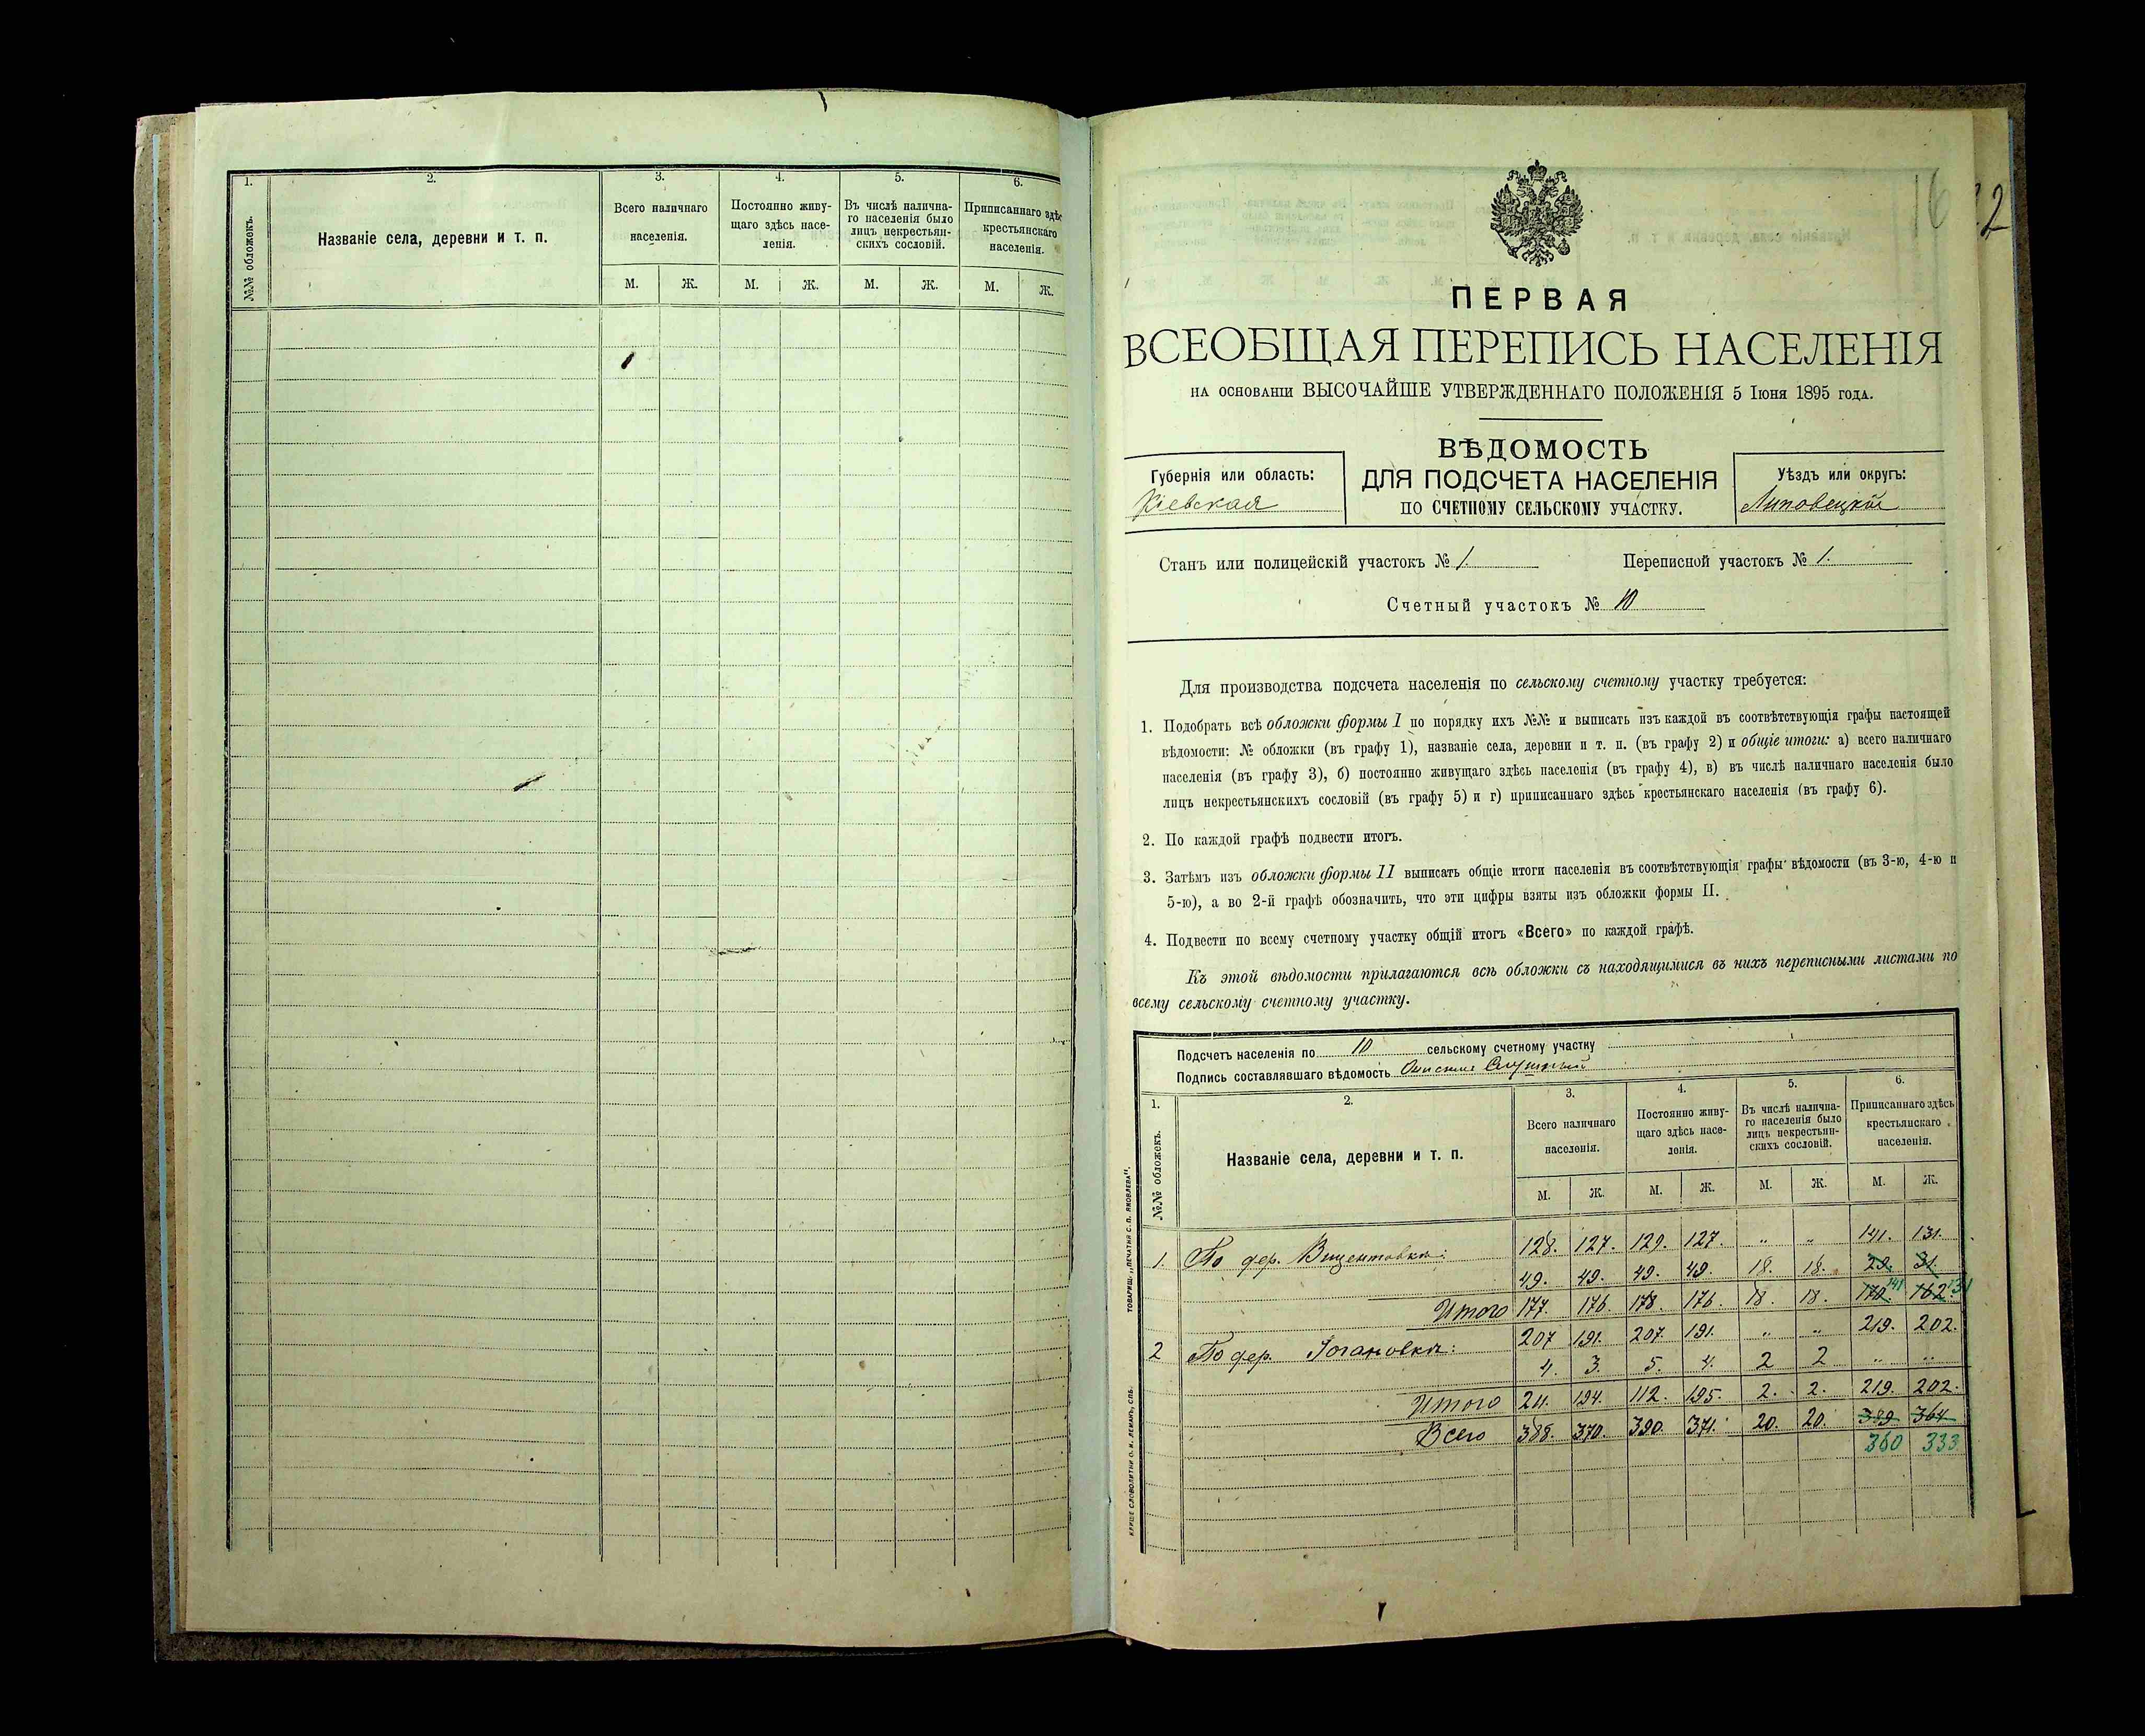 1. 2. 3. 4. 5. 6.
№№ обложекъ.
Названіе села, деревни и т. п.
Всего наличнаго населенія.
Постоянно живу-
щаго здѣсь насе-
ленія.
Въ числѣ налична-
го населенія было
лицъ некрестьян-
скихъ сословій.
Приписаннаго здѣс
крестьянскаго
населенія.
М. Ж. М. Ж. М. Ж. М. Ж.
16 2
ПЕРВАЯ
ВСЕОБЩАЯ ПЕРЕПИСЬ НАСЕЛЕНІЯ
НА ОСНОВАНІИ ВЫСОЧАЙШЕ УТВЕРЖДЕННАГО ПОЛОЖЕНІЯ 5 Іюня 1895 ГОДА.
Губернія или область:
Кіевская
ВѢДОМОСТЬ
ДЛЯ ПОДСЧЕТА НАСЕЛЕНІЯ
ПО СЧЕТНОМУ СЕЛЬСКОМУ УЧАСТКУ.
Уѣздъ или округъ:
Липовецкій
Станъ или полицейскій участокъ № 1. Переписной участокъ № 1.
Счетный участокъ № 10
Для производства подсчета населенія по сельскому счетному участку требуется:
1. Подобрать всѣ обложки формы I по порядку ихъ №№ и выписать изъ каждой въ соотвѣтствующія графы настоящей
вѣдомости: № обложки (въ графу 1), названіе села, деревни и т. п. (въ графу 2) и общіе итоги: а) всего наличнаго
населенія (въ графу 3), б) постоянно живущаго здѣсь населенія (въ графу 4), в) въ числѣ наличнаго населенія было
лицъ некрестьянскихъ сословій (въ графу 5) и г) приписаннаго здѣсь крестьянскаго населенія (въ графу 6).
2. По каждой графѣ подвести итогъ.
3. Затѣмъ изъ обложки формы II выписать общіе итоги населенія въ соотвѣтствующія графы вѣдомости (въ 3-ю, 4-ю и
5-ю), а во 2-й графѣ обозначить, что эти цифры взяты изъ обложки формы II.
4. Подвести по всему счетному участку общій итогъ «Всего» по каждой графѣ.
Къ этой вѣдомости прилагаются всѣ обложки съ находящимися въ нихъ переписными листами по
всему сельскому счетному участку.
Подсчетъ населенія по 10 сельскому счетному участку
Подпись составлявшаго вѣдомость
1. 2. 3. 4. 5. 6.
№№ обложекъ.
Названіе села, деревни и т. п.
Всего наличнаго
населенія.
Постоянно живу-
щаго здѣсь насе-
ленія.
Въ числѣ налична-
го населенія было
лицъ некрестьян-
скихъ сословій.
Приписаннаго здѣсь
крестьянскаго
населенія.
М. Ж. М. Ж. М. Ж. М. Ж.
1. По дер. Вицентовка: 128. 127. 129. 127. „ „ 141. 131.
49. 49. 49. 49. 18. 18. 29. 31.
Итого 177. 176. 178. 176. 18. 18. 170. 141 162. 131
2 По дер. Рогановка: 207 191. 207. 191. „ „ 219. 202.
4. 3. 5. 4. 2 2 „ „
Итого 211. 194. 112. 195. 2. 2. 219. 202.
Всего 388. 370. 390. 371. 20. 20. 389 364
360 333
ТОВАРИЩ. „ПЕЧАТНЯ С. П. ЯКОВЛЕВА“.
КЛИШЕ СЛОВОЛИТНИ О. И. ЛЕМАНЪ, СПБ.